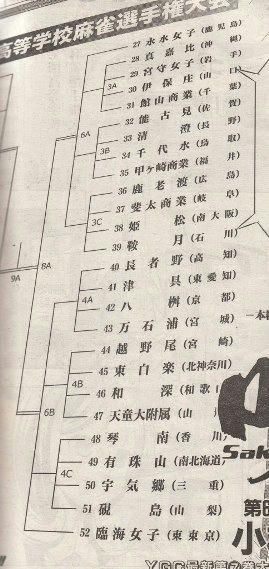 高等学校麻雀選手権大会
27 永水女子(鹿児島)
28 真嘉比(沖縄)
29 宮守女子(岩手)
30 伊保庄(山口)
31 館山商業(千葉)
32 能古見(佐賀)
33 清澄(長野)
34 千代水(鳥取)
35 甲ヶ崎商業(福井)
36 鹿老渡(広島)
37 斐太商業(岐阜)
38 姫松(南大阪)
39 鞍月(石川)
40 長者野(高知)
41 津具(東愛知)
42 八桝(京都)
43 万石浦(宮城)
44 越野尾(宮崎)
45 東白楽(北神奈川)
46 和深(和歌
47 天童大附属(山
48 琴南(香川)
49 有珠山(南北海道)
50 宇気郷(三重)
51 硯島(山梨)
52 臨海女子(東東京)
3A
3B
3C
4A
4B
4C
6A
6B
8A
9A
Sak
第
小